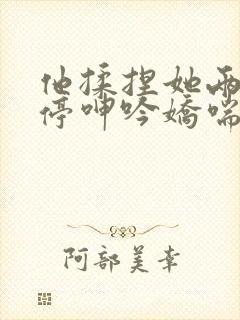 他揉捏她两
停呻吟娇喘
阿部美幸